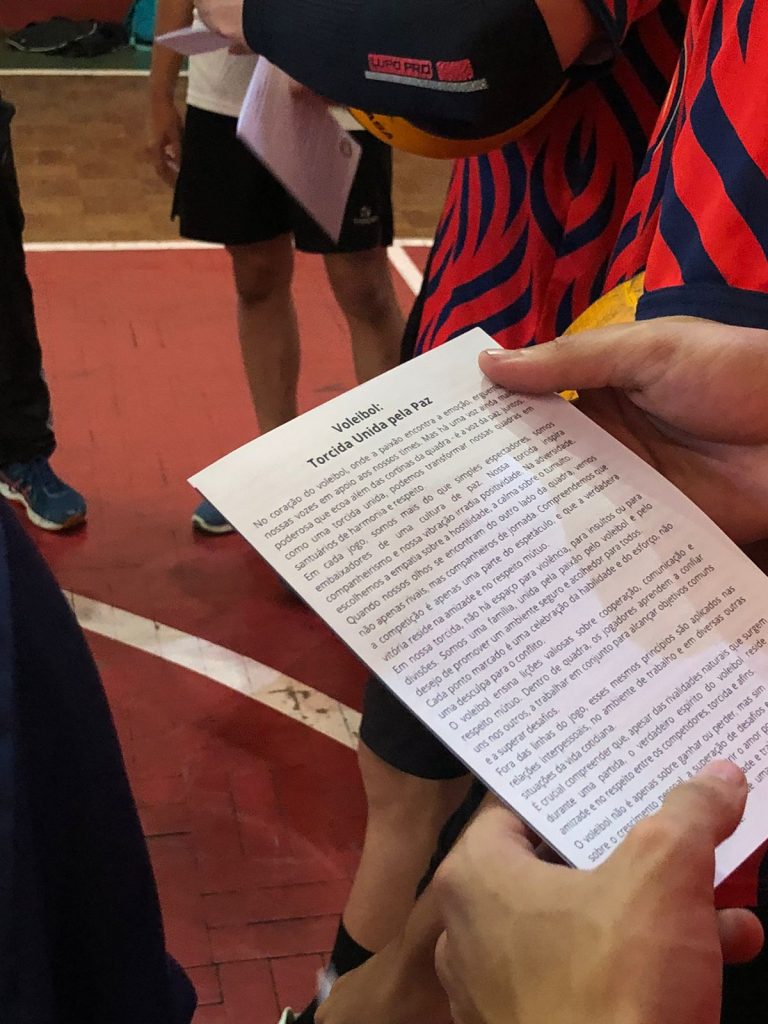 LUPO PRO
Voleibol:
Torcida Unida pela Paz
No coração do voleibol, onde a paixão encontra a emoção,
nossas vozes em apoio aos nossos times. Mas há uma voz ainda mais
poderosa que ecoa além das cortinas da quadra - é a voz da paz. Juntos,
como uma torcida unida, podemos transformar nossas quadras em
santuários de harmonia e respeito.
Em cada jogo, somos mais do que simples espectadores, somos
embaixadores de uma cultura de paz. Nossa torcida inspira
companheirismo e nossa vibração irradia positividade. Na adversidade,
escolhemos a empatia sobre a hostilidade, a calma sobre o tumulto.
Quando nossos olhos se encontram do outro lado da quadra, vemos
não apenas rivais, mas companheiros de jornada. Compreendemos que
a competição é apenas uma parte do espetáculo, e que a verdadeira
vitória reside na amizade e no respeito mútuo.
Em nossa torcida, não há espaço para violência, para insultos ou para
divisões. Somos uma família, unida pela paixão pelo voleibol e pelo
desejo de promover um ambiente seguro e acolhedor para todos.
Cada ponto marcado é uma celebração da habilidade e do esforço, não
uma desculpa para o conflito.
O voleibol ensina lições valiosas sobre cooperação, comunicação e
respeito mútuo. Dentro de quadra, os jogadores aprendem a confiar
uns nos outros, a trabalhar em conjunto para alcançar objetivos comuns
e a superar desafios.
Fora das linhas do jogo, esses mesmos princípios são aplicados nas
relações interpessoais, no ambiente de trabalho e em diversas outras
situações da vida cotidiana.
É crucial compreender que, apesar das rivalidades naturais que surgem
durante uma partida, o verdadeiro espírito do voleibol reside
amizade e no respeito entre os competidores, torcida e afins.
O voleibol não é apenas sobre ganhar ou perder, mas sim
sobre o crescimento pessoal, a superação de desafios e